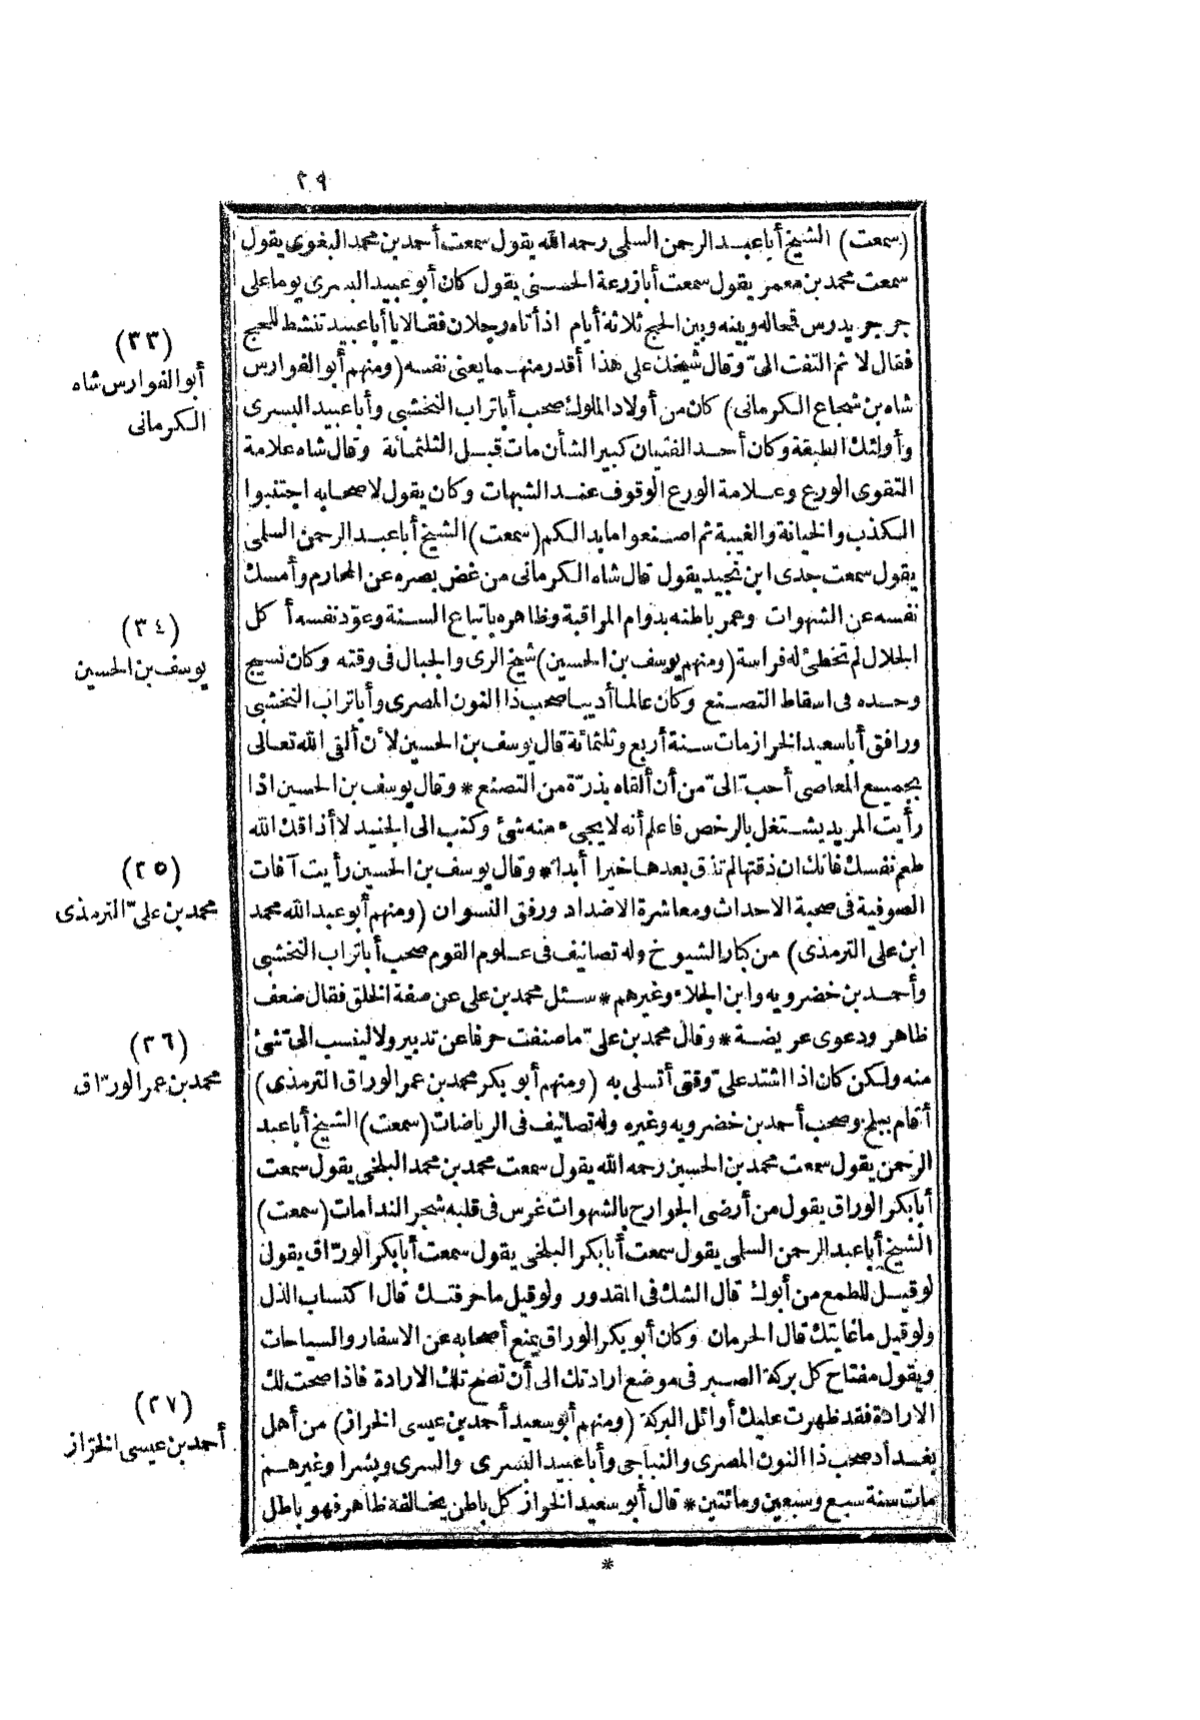 ٢٩
(سمعت) الشيخ أبا عبد الرحمن السلمى رحمه الله يقول سمعت أحمد بن محمد البغوى يقول
سمعت محمد بن معمر يقول سمعت أبا زرعة الحسنى يقول كان أبو عبيد البسرى يوما على
جرجر يدرس قمحاله وبينه وبين الحج ثلاثة أيام اذ أتاه رجلان فقالا يا أبا عبيد تنشط للحج
فقال لا ثم التفت الىّ وقال شيخك على هذا أقدر منهـ ما يعنى نفسه (ومنهم أبو الفوارس
شاه بن شجاع الكرمانى) كان من أولاد الملوك صحب أبا تراب النخشبى وأبا عبيد البسرى
وأولئك الطبقة وكان أحد الفتيان كبير الشأن مات قبل الثلثمائة وقال شاه علامة
التقوى الورع وعلامة الورع الوقوف عند الشبهات وكان يقول لاصحابه اجتنبوا
الكذب والخيانة والغيبة ثم اصنعوا ما بدا لكم (سمعت) الشيخ أبا عبد الرحمن السلمى
يقول سمعت جدى ابن نجيد يقول قال شاه الكرمانى من غض بصره عن المحارم وأمسك
نفسه عن الشهوات وعمر باطنه بدوام المراقبة وظاهره باتباع السنة وعوّد نفسه أكل
الحلال لم تخطئ له فراسة (ومنهم يوسف بن الحسين) شيخ الرى والجبال فى وقته وكان نسيج
وحده فى اسقاط التصنع وكان عالما أديبا صحب ذا النون المصرى وأبا تراب النخشبى
ورافق أبا سعيد الخراز مات سنة أربع وثلثمائة قال يوسف بن الحسين لأن ألقى الله تعالى
بجميع المعاصى أحبّ الىّ من أن ألقاه بذرّة من التصنع * وقال يوسف بن الحسين اذا
رأيت المريد يشتغل بالرخص فاعلم أنه لا يجىء منه شئ وكتب الى الجنيد لا أذاقك الله
طعم نفسك فانك ان ذقتها لم تذق بعدها خيرا أبدا * وقال يوسف بن الحسين رأيت آفات
الصوفية فى صحبة الاحداث ومعاشرة الاضداد ورفق النسوان (ومنهم أبو عبد الله محمد
ابن على الترمذى) من كبار الشيوخ وله تصانيف فى علوم القوم صحب أبا تراب النخشبى
وأحمد بن خضرويه وابن الجلاء وغيرهم * سئل محمد بن على عن صفة الخلق فقال ضعف
ظاهر ودعوى عريضة * وقال محمد بن علىّ ما صنفت حرفا عن تدبير ولا لينسب الىّ شئ
منه ولكن كان اذا اشتد علىّ وقتى أتسلى به (ومنهم أبو بكر محمد بن عمر الوراق الترمذى)
أقام ببلخ وصحب أحمد بن خضرويه وغيره وله تصانيف فى الرياضات (سمعت) الشيخ أبا عبد
الرحمن يقول سمعت محمد بن الحسين رحمه الله يقول سمعت محمد بن محمد البلخى يقول سمعت
أبا بكر الوراق يقول من أرضى الجوارح بالشهوات غرس فى قلبه شجر الندامات (سمعت)
الشيخ أبا عبد الرحمن السلمى يقول سمعت أبا بكر البلخى يقول سمعت أبا بكر الورّاق يقول
لو قيل للطمع من أبوك قال الشك فى المقدور ولو قيل ما حرفتك قال اكتساب الذل
ولو قيل ما غايتك قال الحرمان وكان أبو بكر الوراق يمنع أصحابه عن الاسفار والسياحات
ويقول مفتاح كل بركة الصبر فى موضع ارادتك الى أن تصح تلك الارادة فاذا صحت لك
الارادة فقد ظهرت عليك أوائل البركة (ومنهم أبو سعيد أحمد بن عيسى الخراز) من أهل
بغداد صحب ذا النون المصرى والنباجى وأبا عبيد البسرى والسرى وبشرا وغيرهم
مات سنة سبع وسبعين ومائتين * قال أبو سعيد الخراز كل باطن يخالفه ظاهر فهو باطل
*
(٣٣)
أبو الفوارس شاه
الكرمانى
(٣٤)
يوسف بن الحسين
(٣٥)
محمد بن علىّ الترمذى
(٣٦)
محمد بن عمر الورّاق
(٣٧)
أحمد بن عيسى الخرّاز